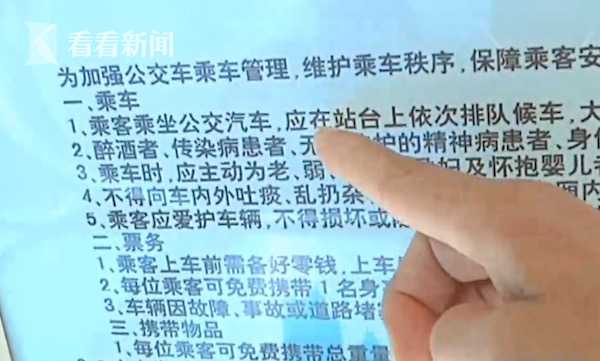 看看新闻
为加强公交车乘车管理,维护乘车秩序,保障乘客安
一、乘车
1、乘客乘坐公交汽车,应在站台上依次排队候车,大
2、醉酒者、传染病患者、无 护的精神病患者、身
3、乘车时,应主动为老、弱、 妇及怀抱婴儿
4、不得向车内外吐痰、乱扔杂 厢内
5、乘客应爱护车辆,不得损坏或
二、票务
1、乘客上车前需备好零钱,上车
2、每位乘客可免费携带1名身
3、车辆因故障、事故或道路堵
三、携带物品
1、每位乘客可免费携带总重量